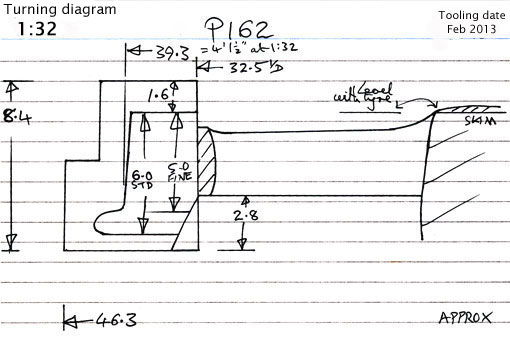 Turning diagram
1:32
P162
Tooling date
Feb 2013
39.3
= 4' 1½" at 1:32
32.5 I/D
1.6
Level
with tyre
8.4
SKIM
6.0
STD
5.0
FINE
2.8
46.3
APPROX